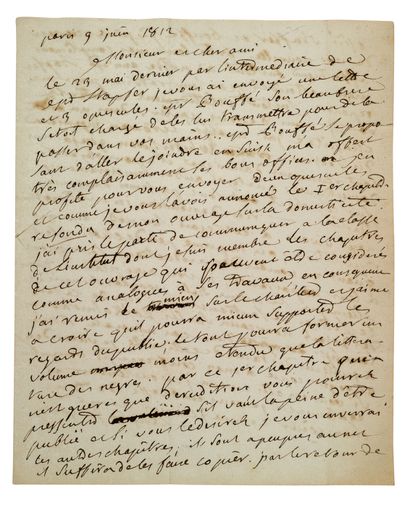 paris 9 juin 1812
Monsieur et cher ami
le 23 mai dernier par l'intermediaire de
Mr Stapfer je vous ai envoyé une lettre
et 3 opuscules. Mr Bouffé son beaufrere
setoit chargé de les lui transmettre pour de la
passer dans vos mains. Mr Bouffé se propo
sant d'aller le joindre en Suisse ma offert
très complaisamment ses bons offices. J'en
profite pour vous envoyer deux opuscules
et comme je vous lavois annoncé le 1er chap
refondu de mon ouvrage sur la domesticité
j'ai pris le parti de communiquer a la classe
de l'institut dont je suis membre les chapitres
de cet ouvrage qui peuvent etre considérés
comme analogues a ses travaux en consequence
j'ai remis le sur le chantier et j'aime
a croire quil pourra mieux supporter les
regards du public. le tout pourra former un
volume moins etendu que la littera-
ture des negres. par ce 1er chapitre qui
nest gueres que derudition vous pourrez
pressentir sil vaut la peine d'être
publié et si vous le desirez je vous enverrai
les autres chapitres, ils sont a peu près au net
il suffira de les faire copier. par le retour de